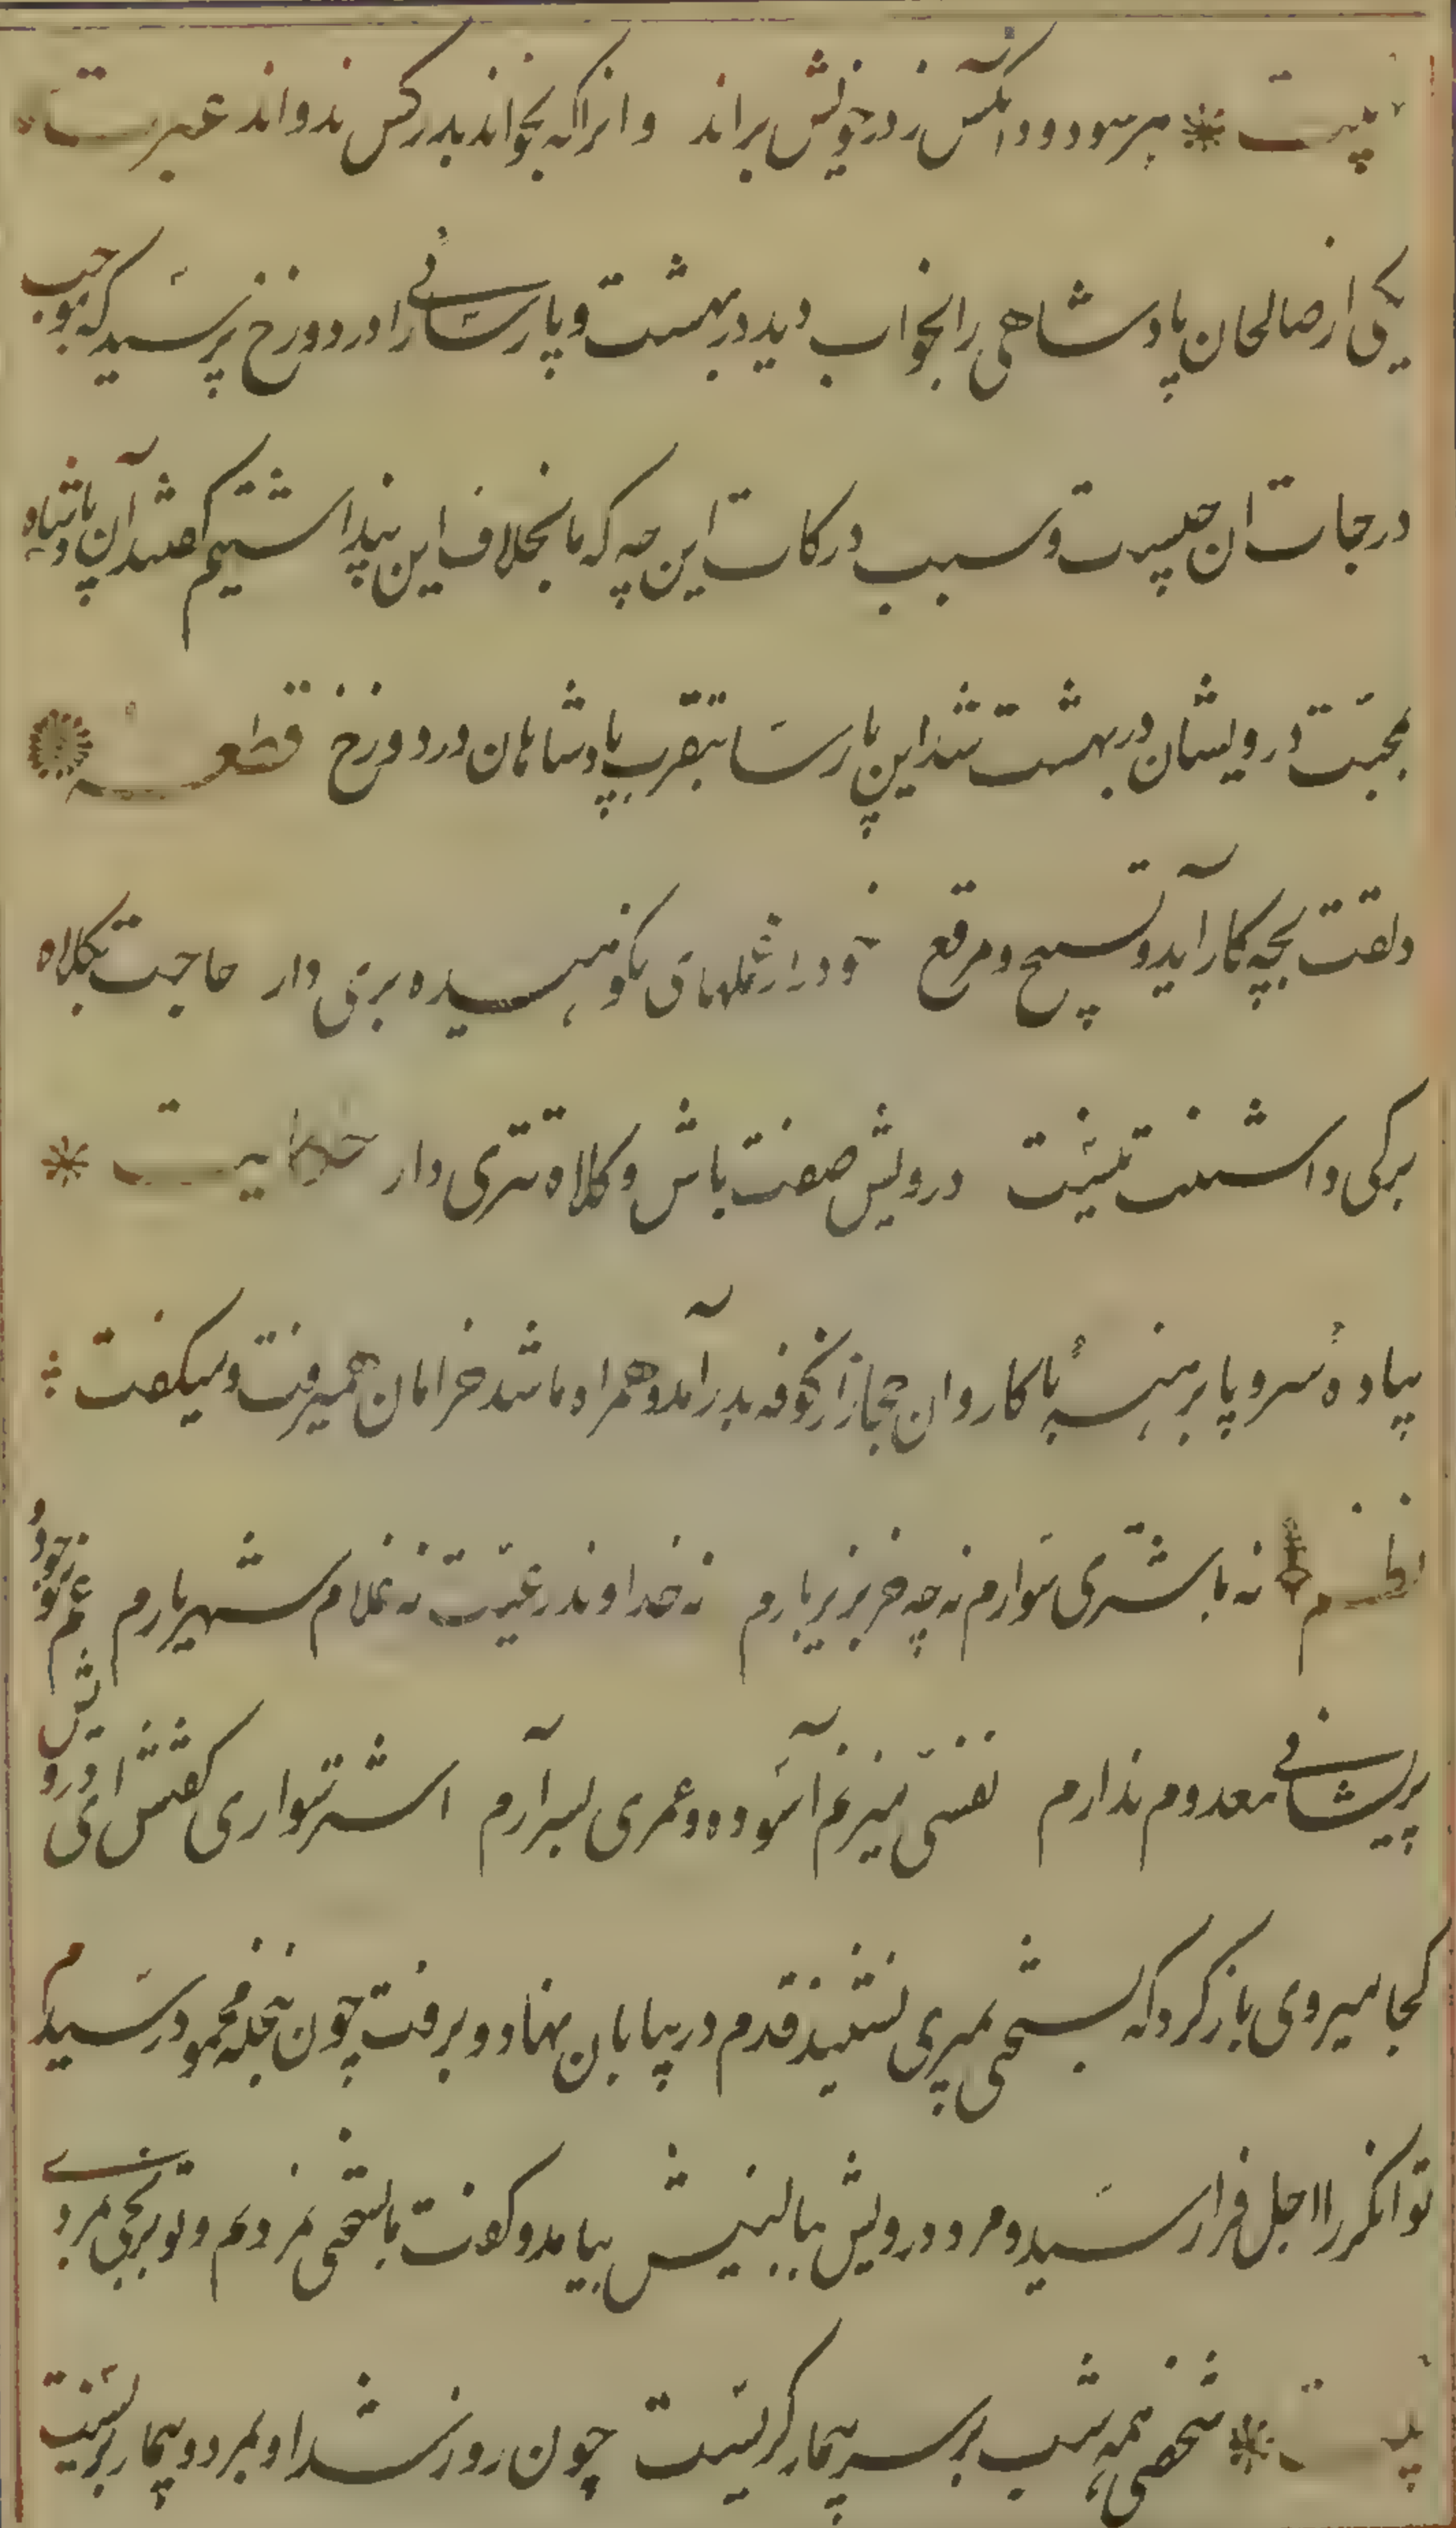 بیت هر سو دود آنکس ز در خویش براند وانرا که بخواند بدر کس ندواند عبرت
یکی از صالحان پادشاهی را بخواب دید در بهشت و پارسائی را در دوزخ پرسید که موجب
درجات ان چیست و سبب درکات این چه که ما بخلاف این پنداشتیم گفتند آن پادشاه
بمحبّت درویشان در بهشت شد این پارسا بتقرب پادشاهان در دوزخ قطعه
دلقت بچه کار آید و تسبیح و مرقع خود را ز عملهای نکوهیده بری دار حاجت بکلاه
برکی داشتنت نیست درویش صفت باش و کلاه تتری دار حکایت
پیادهٔ سر و پا برهنه با کاروان حجاز از کوفه بدر آمد و همراه ما شد خرامان همیرفت و میگفت
نظم نه باشتری سوارم نه چه خر بزیر بارم نه خداوند رعیّت نه غلام شهریارم غم موجود و
پریشانی معدوم ندارم نفسی میزنم آسوده و عمری بسر آرم اشتر سواری گفتش ای درویش
کجا میروی باز کرد که بسختی بمیری نشنید قدم در بیابان نهاد و برفت چون بنخله محمود رسیدم
توانکر را اجل فرا رسید و مرد درویش ببالینش بیامد و کفت ما بسختی نمردیم و تو بر بختی بمردی
بیت شخصی همه شب بر سر بیمار کریست چون روز شد او بمرد و بیمار بزیست